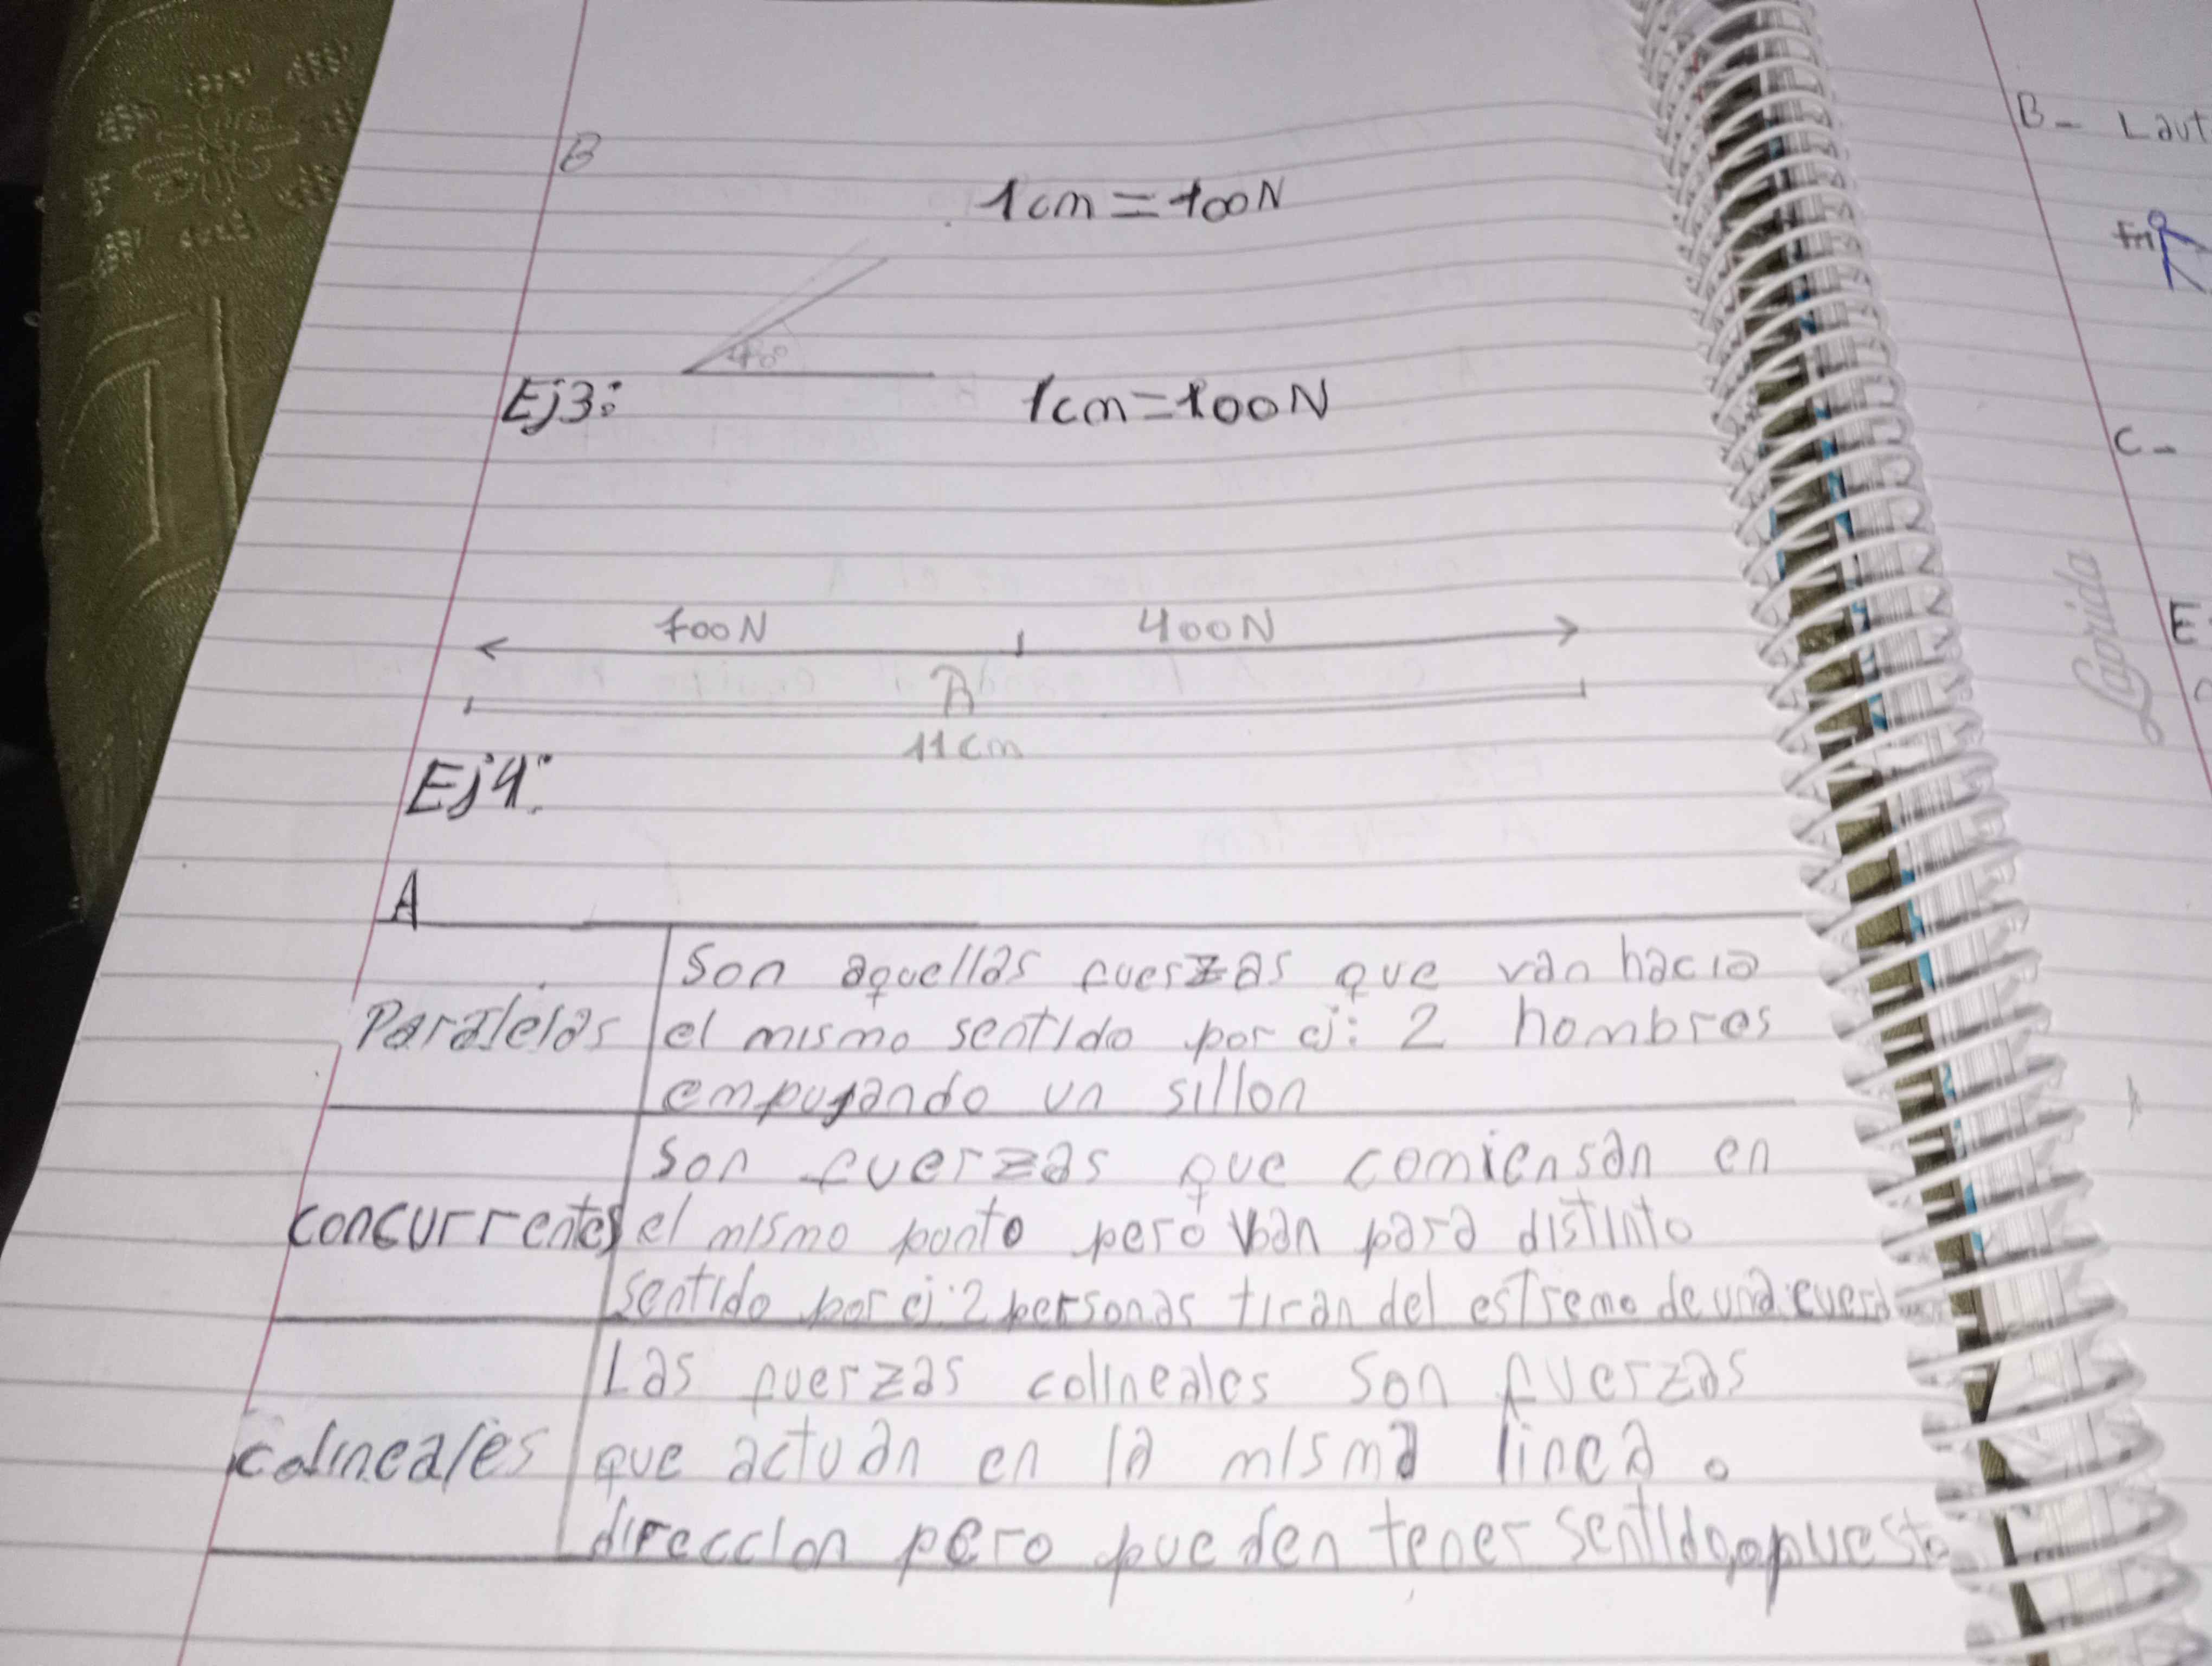 B
1cm=100N
40°
Ej3:
1cm=100N
700N 400N
R
11cm
Ej4:
A
Paralelas
Son aquellas fuerzas que van hacia
el mismo sentido por ej: 2 hombres
empujando un sillon
concurrentes
son fuerzas que comiensan en
el mismo punto pero van para distinto
sentido por ej: 2 personas tiran del estremo de una cuerda
colineales
Las fuerzas colineales son fuerzas
que actuan en la misma linea o
direccion pero pueden tener sentido opuesto
B- Laut
C-
E
Laprida